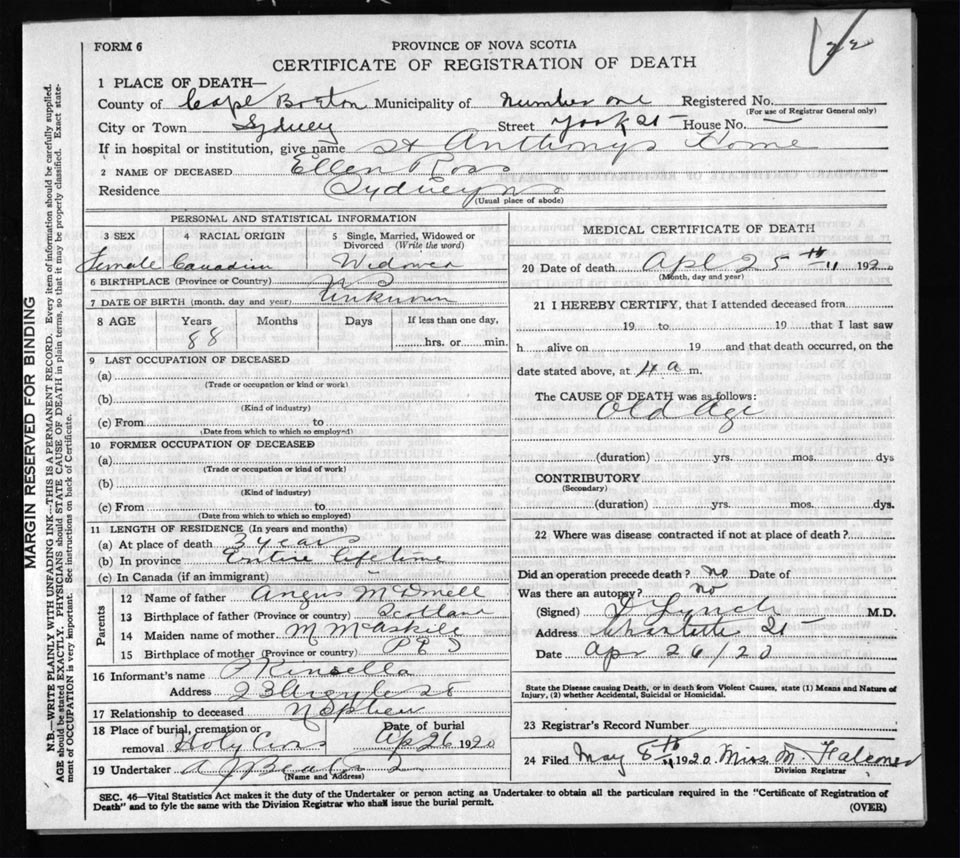 FORM 6
PROVINCE OF NOVA SCOTIA
22
CERTIFICATE OF REGISTRATION OF DEATH
1 PLACE OF DEATH—
County of Cape Breton Municipality of Number one Registered No.
(For use of Registrar General only)
City or Town Sydney Street York St House No. —
If in hospital or institution, give name St Anthonys Home
2 NAME OF DECEASED Ellen Ross
Residence Sydney NS
(Usual place of abode)
PERSONAL AND STATISTICAL INFORMATION
3 SEX 4 RACIAL ORIGIN 5 Single, Married, Widowed or Divorced (Write the word)
Female Canadian Widowed
6 BIRTHPLACE (Province or Country) N S
7 DATE OF BIRTH (month, day and year) Unknown
8 AGE Years Months Days If less than one day,
88 hrs. or min.
9 LAST OCCUPATION OF DECEASED
(a)
(Trade or occupation or kind or work)
(b)
(Kind of industry)
(c) From to
(Date from which to which so employed)
10 FORMER OCCUPATION OF DECEASED
(a)
(Trade or occupation or kind of work)
(b)
(Kind of industry)
(c) From to
(Date from which to which so employed)
11 LENGTH OF RESIDENCE (In years and months)
(a) At place of death 3 years
(b) In province Entire lifetime
(c) In Canada (if an immigrant) —
Parents
12 Name of father Angus McDonell
13 Birthplace of father (Province or country) Scotland
14 Maiden name of mother M McAskill
15 Birthplace of mother (Province or country) P E I
16 Informant's name P Kinsella
Address 23 Argyle St
17 Relationship to deceased Nephew
18 Place of burial, cremation or removal Holy Cross Date of burial Ap 26 1920
19 Undertaker A J Beaton
(Name and Address)
MEDICAL CERTIFICATE OF DEATH
20 Date of death Apl 25th 1920
(Month, day and year)
21 I HEREBY CERTIFY, that I attended deceased from
19 to 19 that I last saw
h alive on 19 and that death occurred, on the
date stated above, at 4 a m.
The CAUSE OF DEATH was as follows:
Old Age
(duration) yrs. mos. dys
CONTRIBUTORY
(Secondary)
(duration) yrs. mos. dys.
22 Where was disease contracted if not at place of death?
Did an operation precede death? No Date of
Was there an autopsy? no
(Signed) D Lynch M.D.
Address Charlotte St
Date Apr 26/20
State the Disease causing Death, or in death from Violent Causes, state (1) Means and Nature of
Injury, (2) whether Accidental, Suicidal or Homicidal.
23 Registrar's Record Number
24 Filed May 8th 1920 Miss M. Falconer
Division Registrar
SEC. 46—Vital Statistics Act makes it the duty of the Undertaker or person acting as Undertaker to obtain all the particulars required in the "Certificate of Registration of
Death" and to fyle the same with the Division Registrar who shall issue the burial permit.
(OVER)
MARGIN RESERVED FOR BINDING
N.B.—WRITE PLAINLY WITH UNFADING INK—THIS IS A PERMANENT RECORD. Every item of information should be carefully supplied.
AGE should be stated EXACTLY. PHYSICIANS should STATE CAUSE OF DEATH in plain terms, so that it may be properly classified. Exact state-
ment of OCCUPATION is very important. See instructions on back of Certificate.